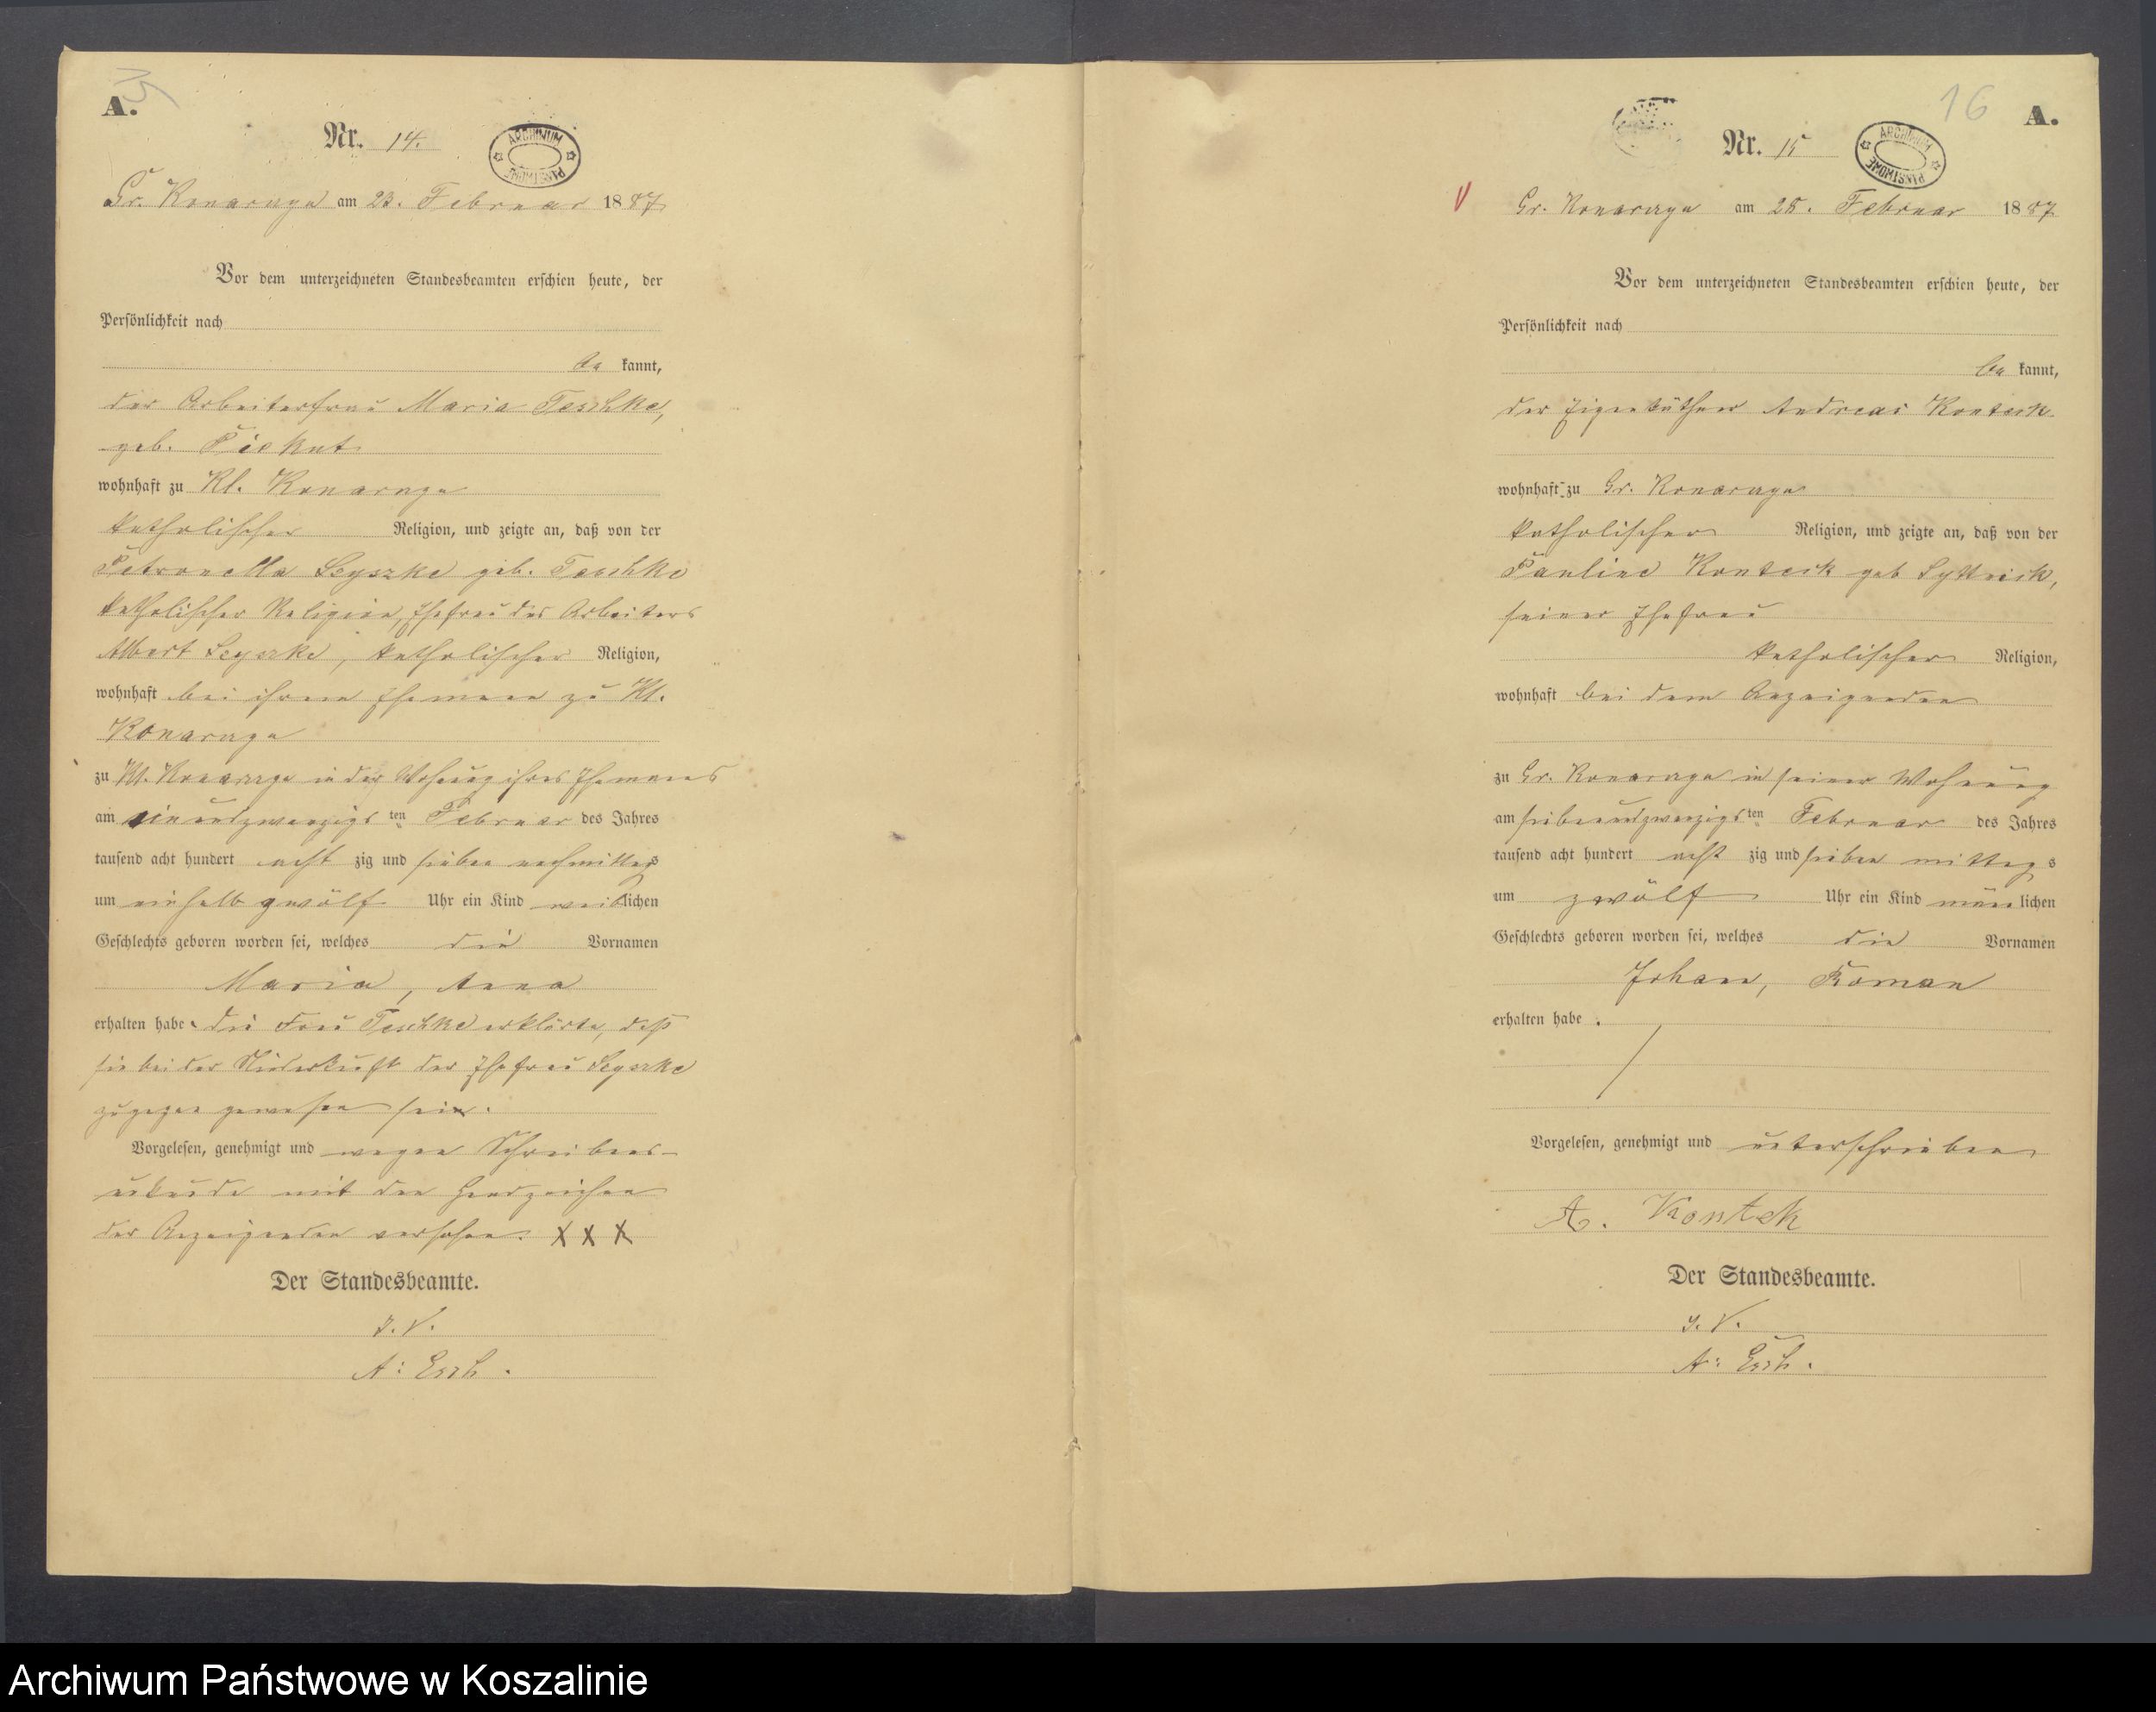 A.
Nr. 14.
ARCHIWUM PAŃSTWOWE
Gr. Konarczyn am 23. Februar 1887
Vor dem unterzeichneten Standesbeamten erschien heute, der
Persönlichkeit nach
be kannt,
der Arbeiterfrau Maria Teschke,
geb.
wohnhaft zu Kl. Konarczyn
katholischer Religion, und zeigte an, daß von der
Petronella geb. Teschke
katholischer Religion, Ehefrau des Arbeiters
Albert katholischer Religion,
wohnhaft bei ihrem Ehemann zu Kl.
Konarczyn
zu Kl. Konarczyn in der Wohnung ihres Ehemannes
am einundzwanzigsten Februar des Jahres
tausend acht hundert acht zig und sieben nachmittags
um ein halb zwölf Uhr ein Kind weiblichen
Geschlechts geboren worden sei, welches die Vornamen
Maria, Anna
erhalten habe. die Frau Teschke erklärte, daß
sie bei der Niederkunft der Ehefrau
zugegen gewesen sei.
Vorgelesen, genehmigt und wegen Schreibens-
unkunde mit den Handzeichen
der Anzeigenden versehen. X X X
Der Standesbeamte.
J. V.
A: Esch.
16
A.
Nr. 15
ARCHIWUM PAŃSTWOWE
Gr. Konarczyn am 28. Februar 1887
Vor dem unterzeichneten Standesbeamten erschien heute, der
Persönlichkeit nach
be kannt,
der Eigenkäthner Andreas Konteck
wohnhaft zu Gr. Konarczyn
katholischer Religion, und zeigte an, daß von der
Pauline Konteck geb
seiner Ehefrau
katholischer Religion,
wohnhaft bei dem Anzeigenden
zu Gr. Konarczyn in seiner Wohnung
am siebenundzwanzigsten Februar des Jahres
tausend acht hundert acht zig und sieben mittags
um zwölf Uhr ein Kind männlichen
Geschlechts geboren worden sei, welches die Vornamen
Johann, Roman
erhalten habe.
Vorgelesen, genehmigt und unterschrieben
A. Kontek
Der Standesbeamte.
J. V.
A: Esch.
Archiwum Państwowe w Koszalinie